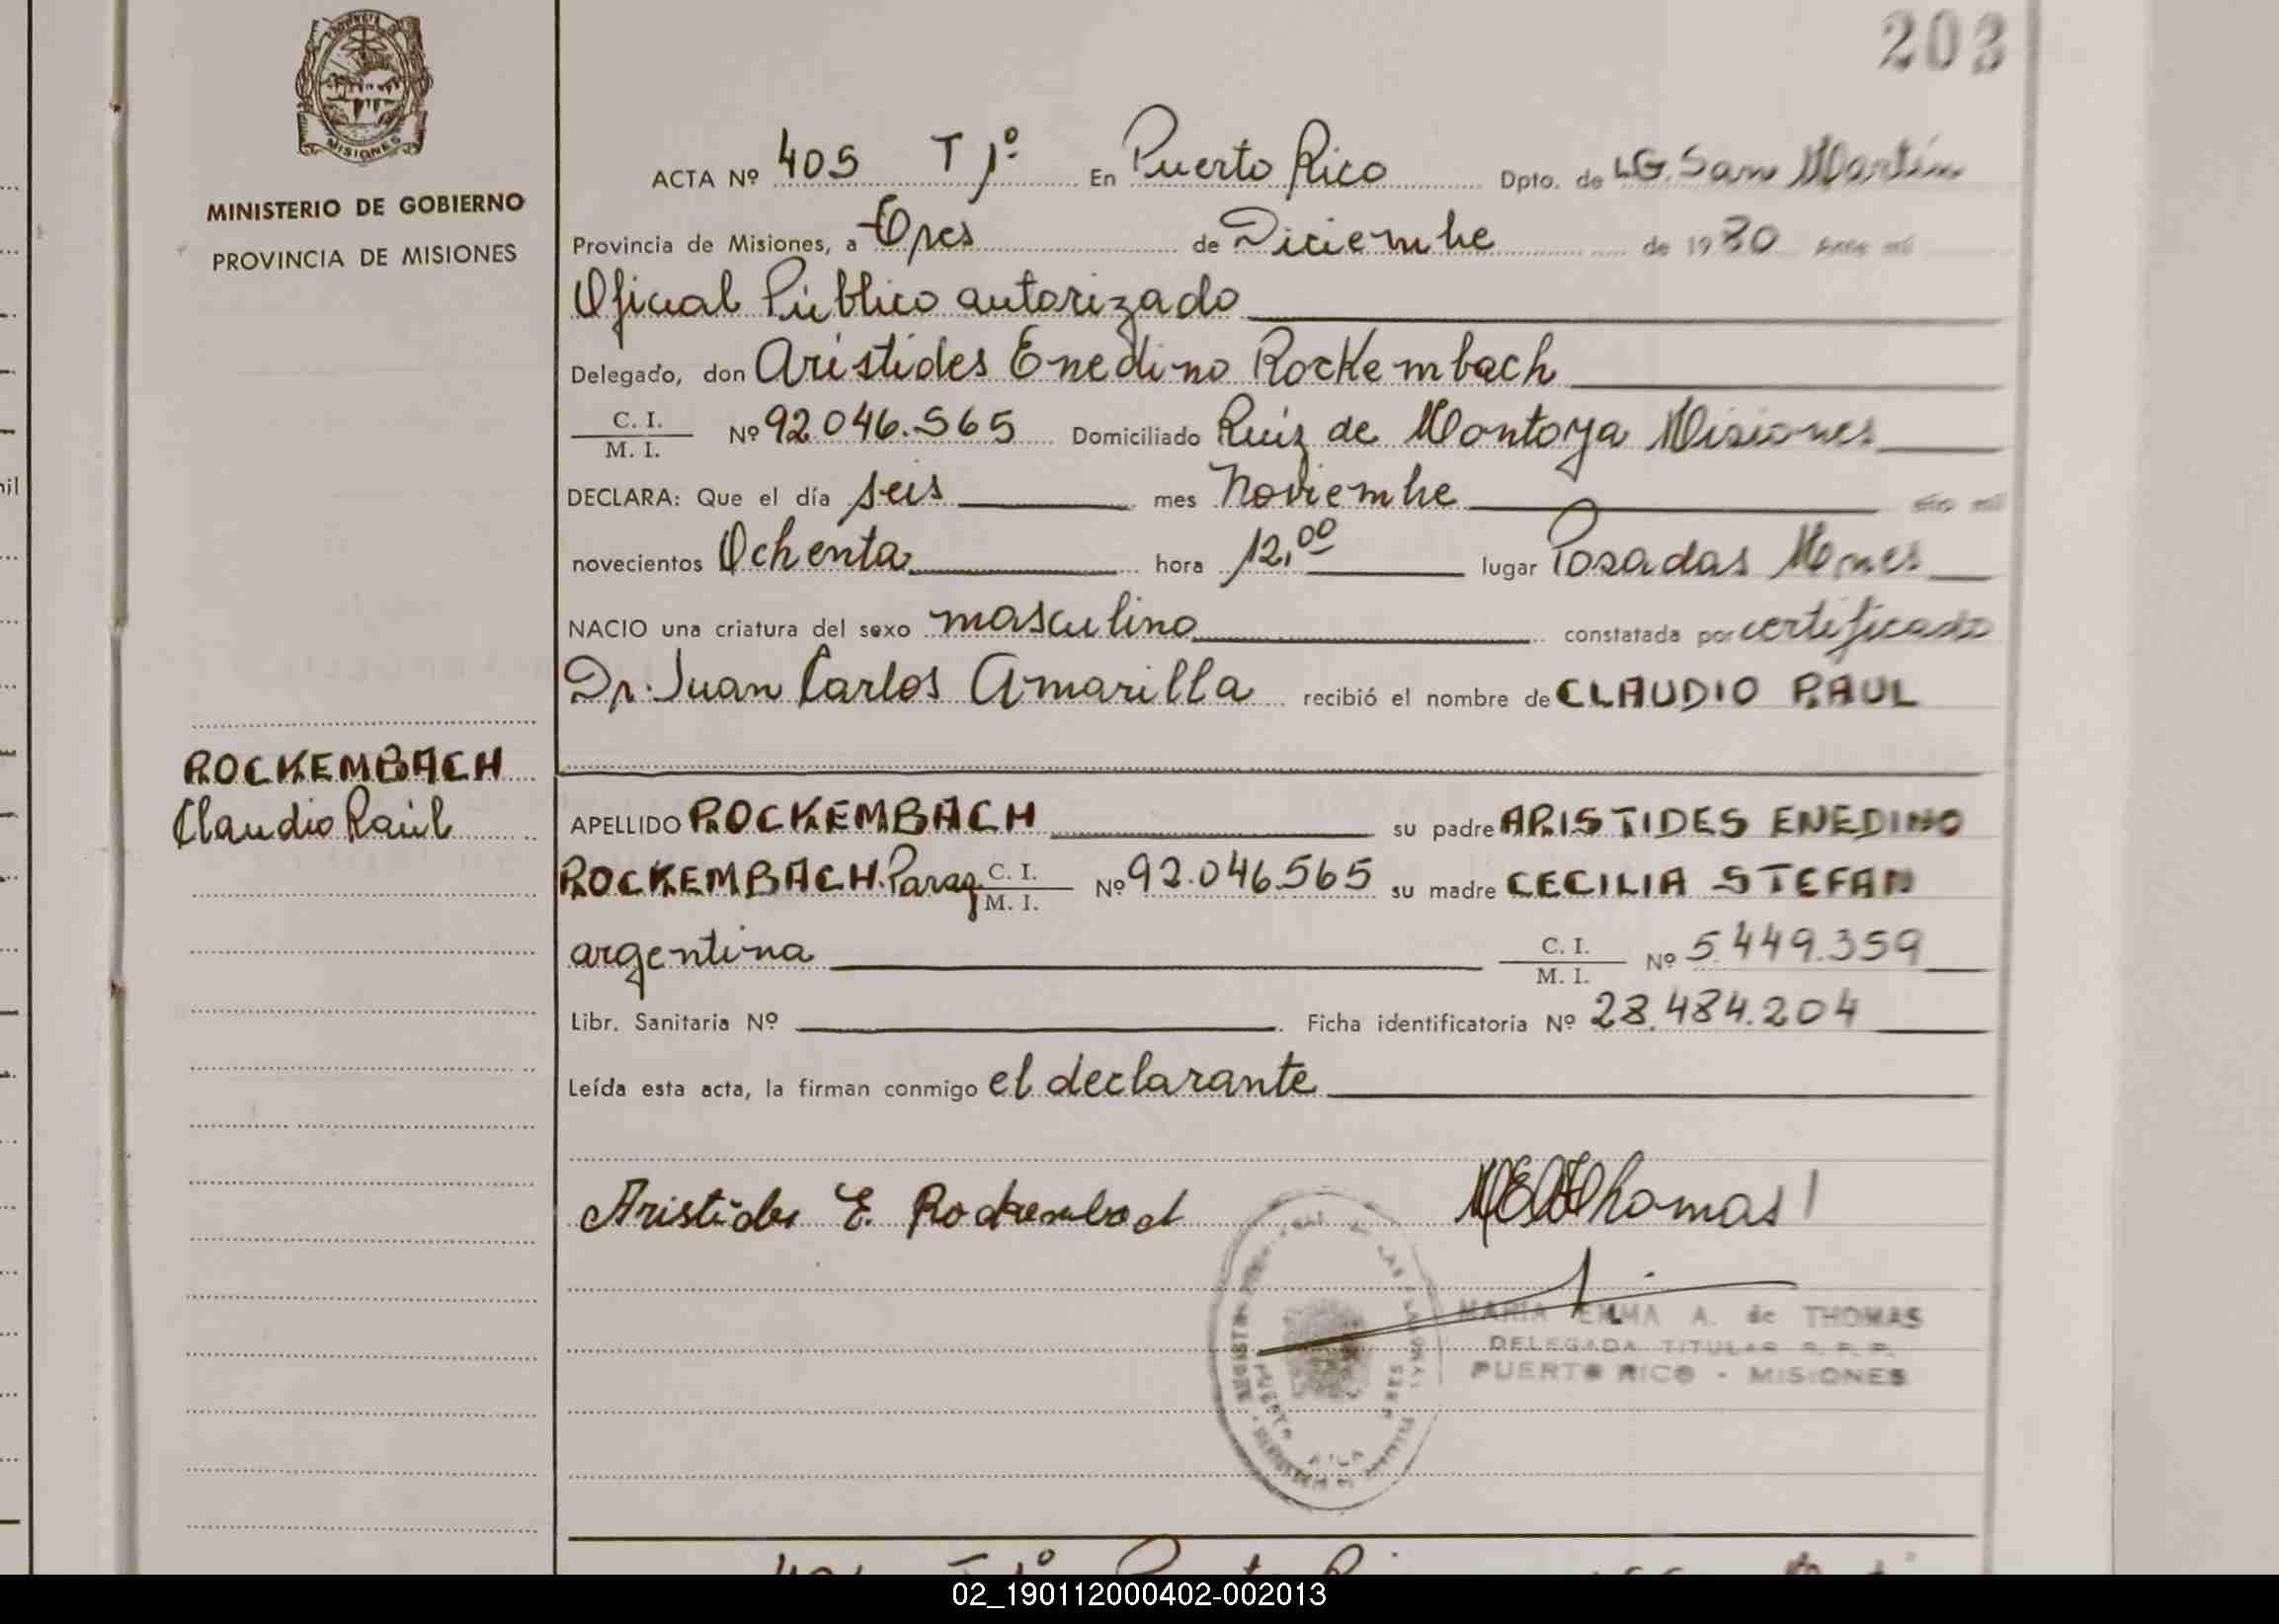 203
MISIONES
MINISTERIO DE GOBIERNO
PROVINCIA DE MISIONES
ACTA Nº 405 T 1º En Puerto Rico Dpto. de LG. San Martín
Provincia de Misiones, a tres de Diciembre de 1980 Ante mí
Oficial Público autorizado
Delegado, don Arístides Enedino Rockembach
C. I. / M. I. Nº 92.046.565 Domiciliado Ruíz de Montoya Misiones
DECLARA: Que el día seis mes Noviembre año mil
novecientos Ochenta hora 12,00 lugar Posadas Mones
NACIO una criatura del sexo masculino constatada por certificado
Dr. Juan Carlos Amarilla recibió el nombre de CLAUDIO RAUL
ROCKEMBACH
Claudio Raúl
APELLIDO ROCKEMBACH su padre ARISTIDES ENEDINO
ROCKEMBACH. Parag. C. I. / M. I. Nº 92.046.565 su madre CECILIA STEFAN
argentina C. I. / M. I. Nº 5.449.359
Libr. Sanitaria Nº Ficha identificatoria Nº 28.484.204
Leída esta acta, la firman conmigo el declarante
Aristides E. Rockembach
Thomas
MARIA EMMA A. de THOMAS
DELEGADA TITULAR R. P. P.
PUERTO RICO - MISIONES
02_190112000402-002013